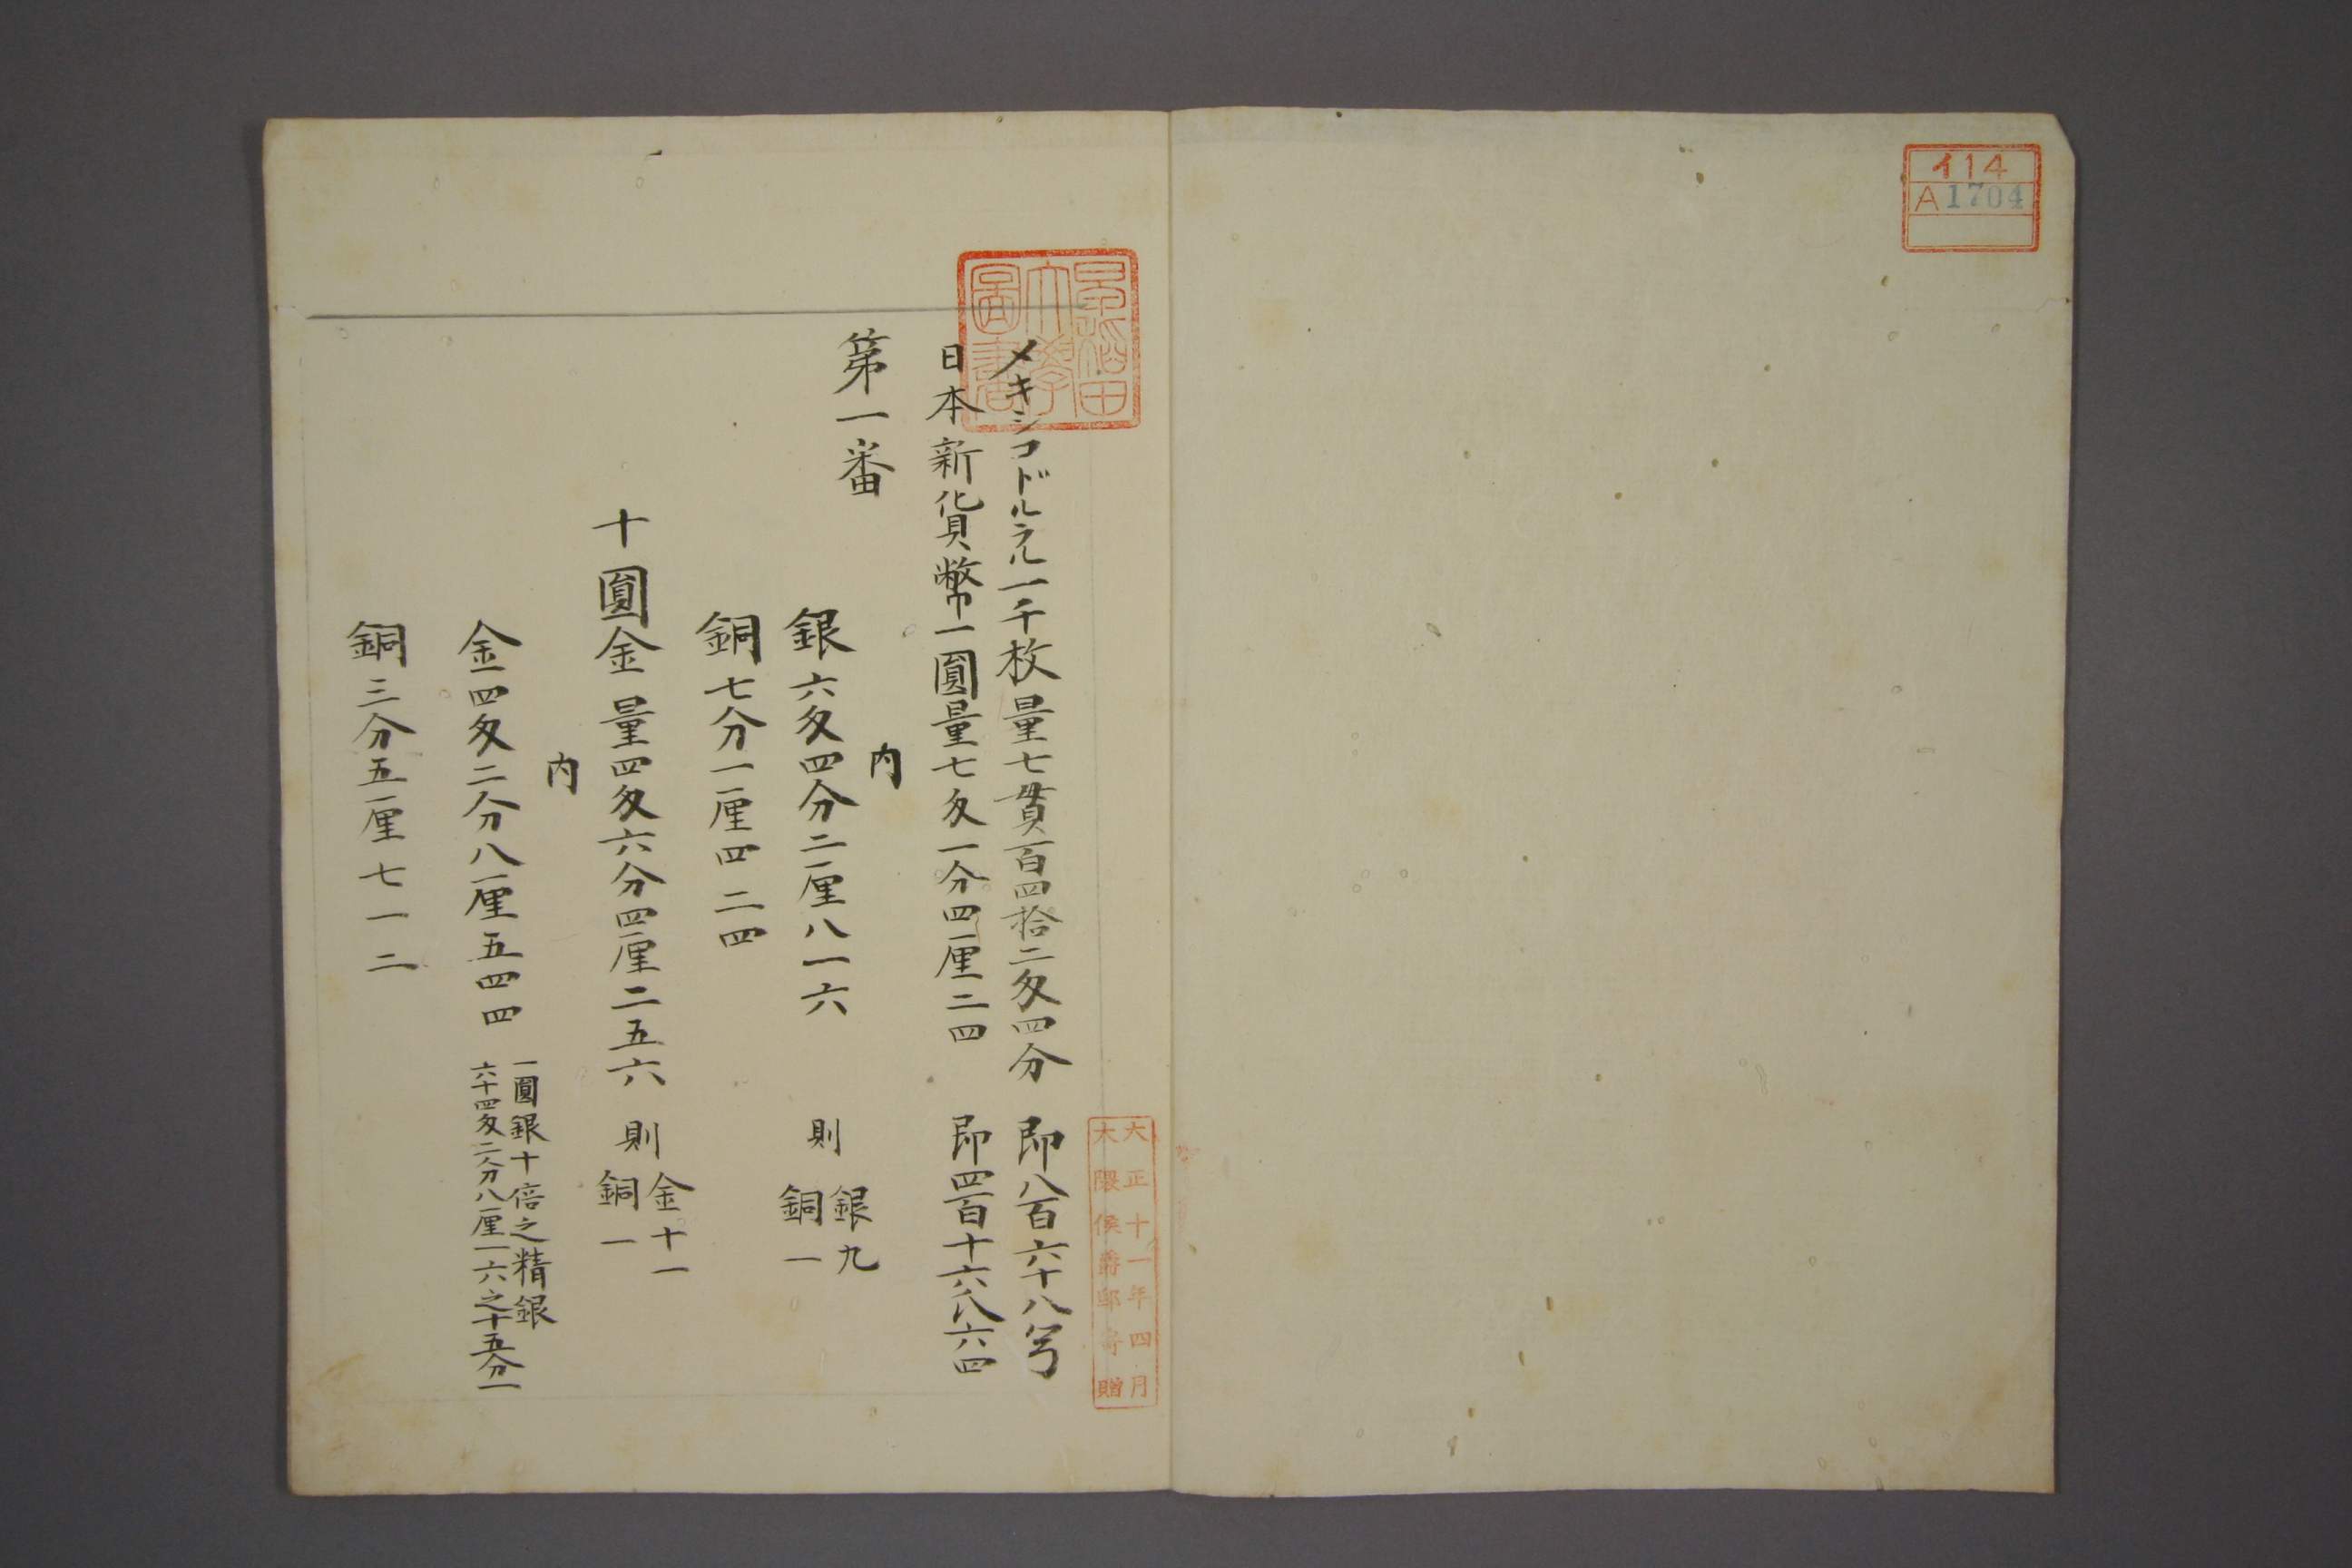 イ14
A1704
早稲田
大學
圖書
大正十一年四月
大隈侯爵邸寄贈
メキシコドルラル一千枚量七貫百四拾二匁四分 即八百六十八
日本新貨幣一圓量七匁一分四厘二四 即四百十六八六四
第一番
内
銀六匁四分二厘八一六 則 銀九
銅一
銅七分一厘四二四
十圓金量四匁六分四厘二五六 則 金十一
銅一
内
金四匁二分八厘五四四 一圓銀十倍之精銀
六十四匁二分八厘一六之十五分一
銅三分五厘七一二